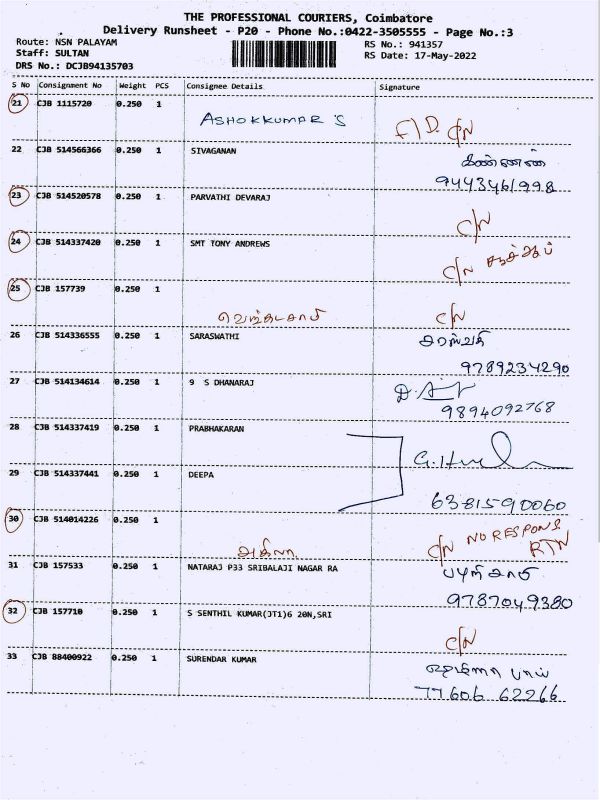 THE PROFESSIONAL COURIERS, Coimbatore
Delivery Runsheet - P20 - Phone No.:0422-3505555 - Page No.:3
Route: NSN PALAYAM RS No.: 941357
Staff: SULTAN RS Date: 17-May-2022
DRS No.: DCJB94135703
S No Consignment No Weight PCS Consignee Details Signature
21 CJB 1115720 0.250 1
ASHOKKUMAR S F/D. C/N
22 CJB 514566366 0.250 1 SIVAGANAN
9443461998
23 CJB 514520578 0.250 1 PARVATHI DEVARAJ
C/N
24 CJB 514337420 0.250 1 SMT TONY ANDREWS
C/N
25 CJB 157739 0.250 1
C/N
26 CJB 514336555 0.250 1 SARASWATHI சரஸ்வதி
9789234290
27 CJB 514134614 0.250 1 9 S DHANARAJ
9894092768
28 CJB 514337419 0.250 1 PRABHAKARAN
29 CJB 514337441 0.250 1 DEEPA
6381590060
30 CJB 514014226 0.250 1
C/N NO RESPONS
RTN
31 CJB 157533 0.250 1 NATARAJ P33 SRIBALAJI NAGAR RA
9787049380
32 CJB 157710 0.250 1 S SENTHIL KUMAR(JT1)6 20N,SRI
C/N
33 CJB 88400922 0.250 1 SURENDAR KUMAR
77606 62266